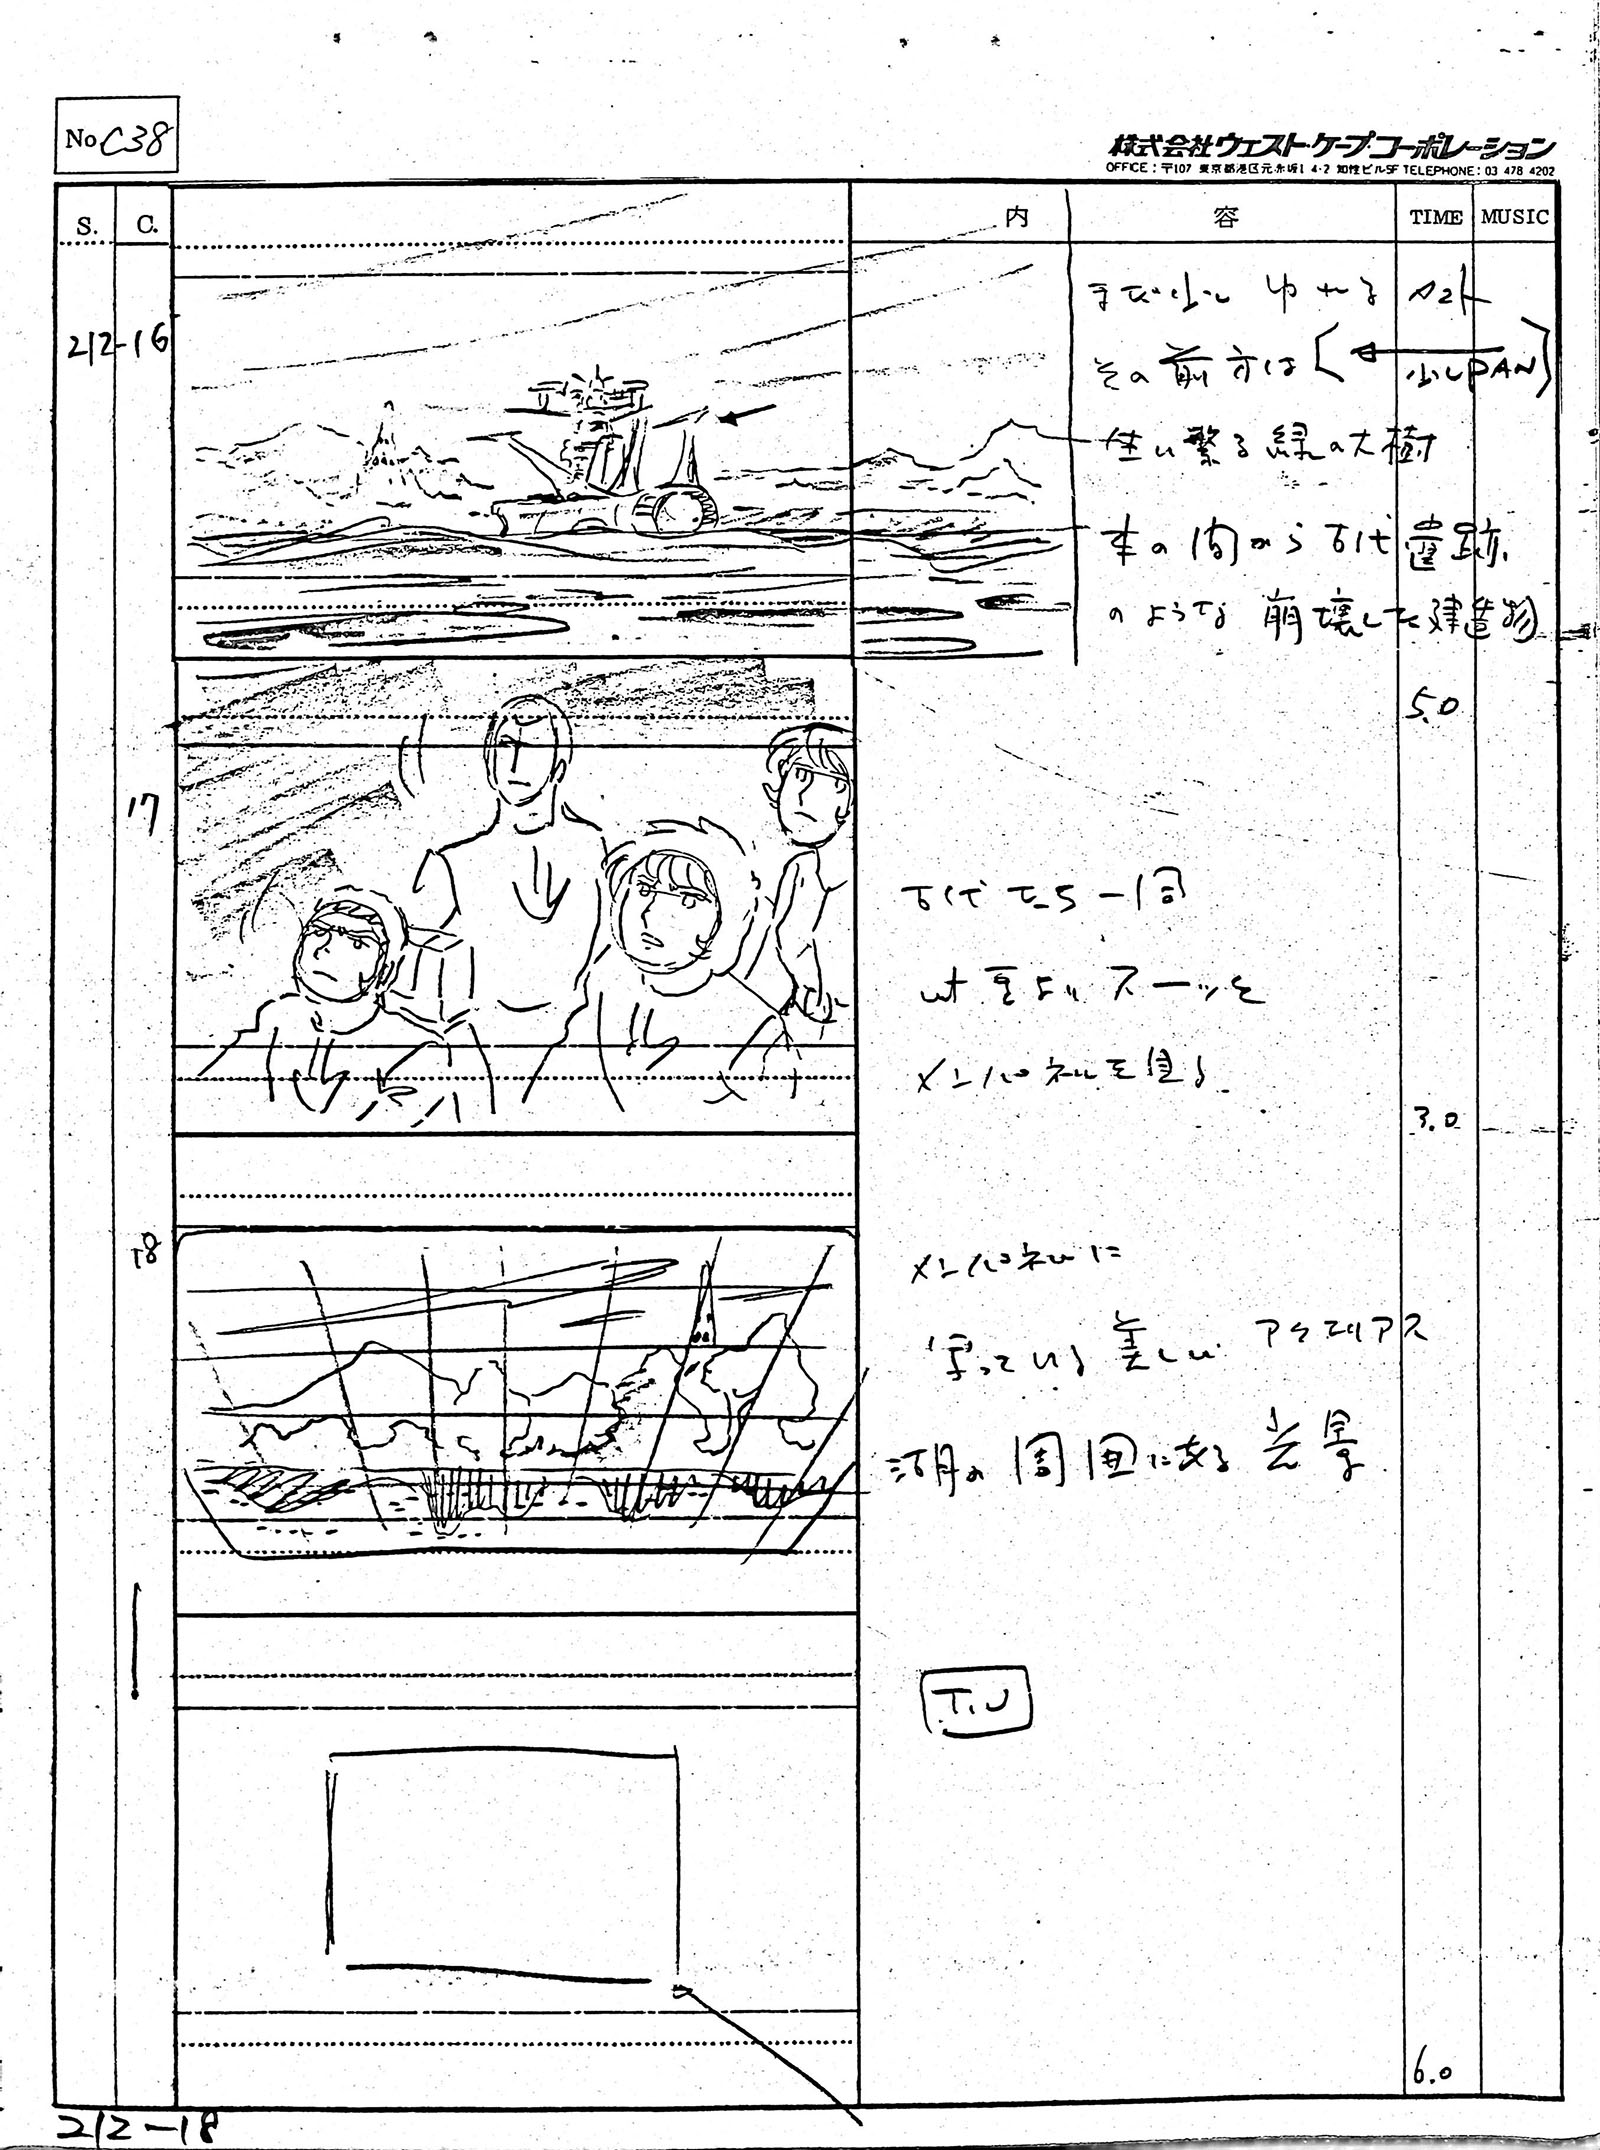 No C38
株式会社ウェスト・ケープ・コーポレーション
OFFICE:〒107 東京都港区元赤坂1 4-2 知性ビル5F TELEPHONE:03 478 4202
S. C. 内 容 TIME MUSIC
212-16
まだ少し ゆれる ヤマト
その前方は [ 少しPAN ]
生い繁る緑の大樹
木の間から古代遺跡
のような 崩壊した建造物
5.0
17
古代たち一同
メインパネルを見る
3.0
18
メインパネルに
写っている 美しい アクエリアス
湖の周囲にある光景
T.U
6.0
212-18